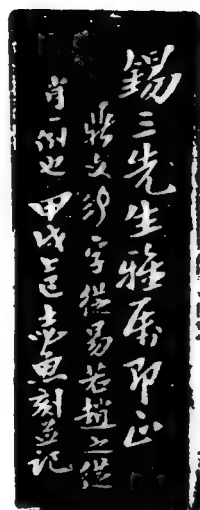 錫三先生雅属即正
鼎文字從易若趙之從
肖一例也甲戌魚刻並記